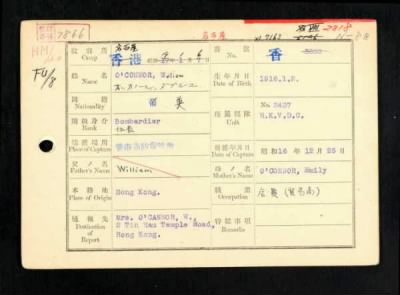 名古屋
7866
収容所
Camp
香港
番号
No.
香
姓名
Name
O'CONNOR, William
生年月日
Date of Birth
1916.1.2.
国籍
Nationality
英
所属部隊
Unit
No 3427
H.K.V.D.C.
階級身分
Rank
Bombardier
捕獲場所
Place of Capture
捕獲年月日
Date of Capture
昭和 16 年 12 月 25 日
父ノ名
Father's Name
William
母ノ名
Mother's Name
O'CONNOR, Emily
本籍地
Place of Origin
Hong Kong.
職業
Occupation
通報先
Destination of Report
Mrs. O'CANNOR, W.,
2 Tin Hau Temple Road,
Hong Kong.
特記事項
Remarks